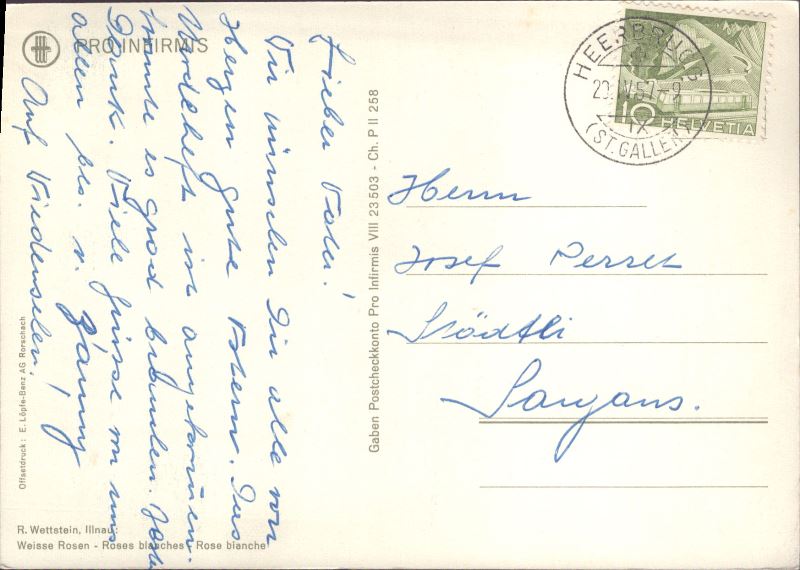 PRO INFIRMIS
Lieber Vater!
Wir wünschen Dir alle von
Herzen gute Ostern. Das
ist angekommen.
konnte es grad brauchen.
Dank. Viele Grüsse von uns
allen bes. v.
Auf Wiedersehen!
Offsetdruck: E. Löpfe-Benz AG Rorschach
R. Wettstein, Illnau:
Weisse Rosen - Roses blanches - Rose bianche
Gaben Postcheckkonto Pro Infirmis VIII 23503 - Ch. P II 258
HEERBRUGG
(ST. GALLEN)
10 HELVETIA
Herrn
Josef Perret
Städtli
Sargans.